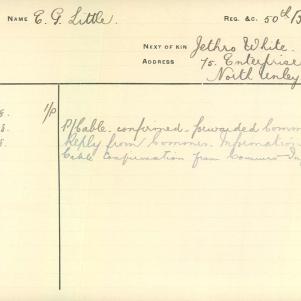 NAME E. G. Little. REG. &C. 50th/
NEXT OF KIN Jethro White.
ADDRESS 75. Enterprise
North Unley
1/P P/Cable. confirmed. forwarded
Reply from Commrs. Information
Cable Confirmation from Commrs